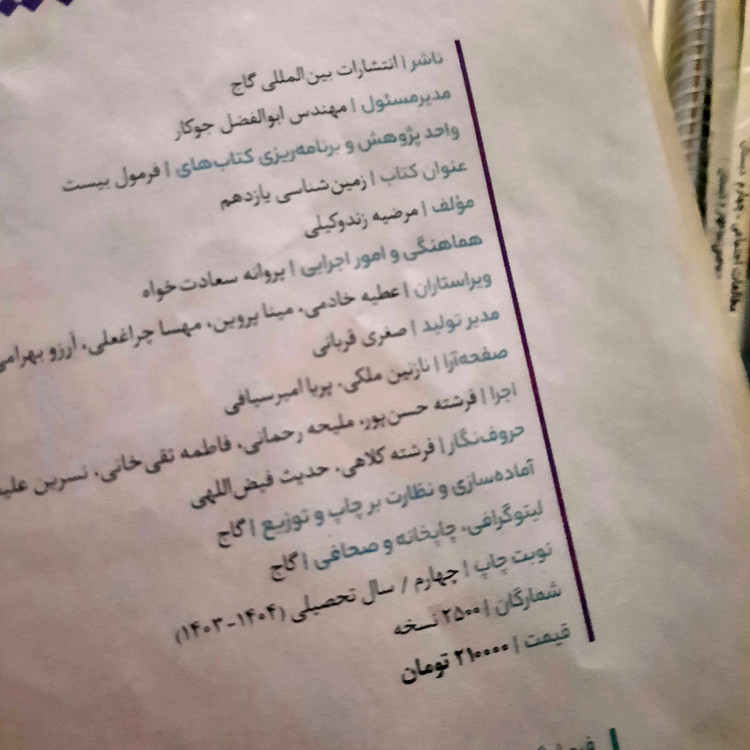 ناشر | انتشارات بین‌المللی گاج
مدیرمسئول | مهندس ابوالفضل جوکار
واحد پژوهش و برنامه‌ریزی کتاب‌های | فرمول بیست
عنوان کتاب | زمین‌شناسی یازدهم
مؤلف | مرضیه زندوکیلی
هماهنگی و امور اجرایی | پروانه سعادت‌خواه
ویراستاران | عطیه خادمی، مینا پروین، مهسا چراغعلی، آرزو بهرامی
مدیر تولید | صغری قربانی
صفحه‌آرا | نازنین ملکی، پریا امیرسیافی
اجرا | فرشته حسن‌پور، ملیحه رحمانی، فاطمه تقی‌خانی، نسرین
حروف‌نگار | فرشته کلاهی، حدیث فیض‌اللهی
آماده‌سازی و نظارت بر چاپ و توزیع | گاج
لیتوگرافی، چاپخانه و صحافی | گاج
نوبت چاپ | چهارم / سال تحصیلی (۱۴۰۴-۱۴۰۳)
شمارگان | ۲۵۰۰ نسخه
قیمت | ۲۱۰۰۰۰ تومان